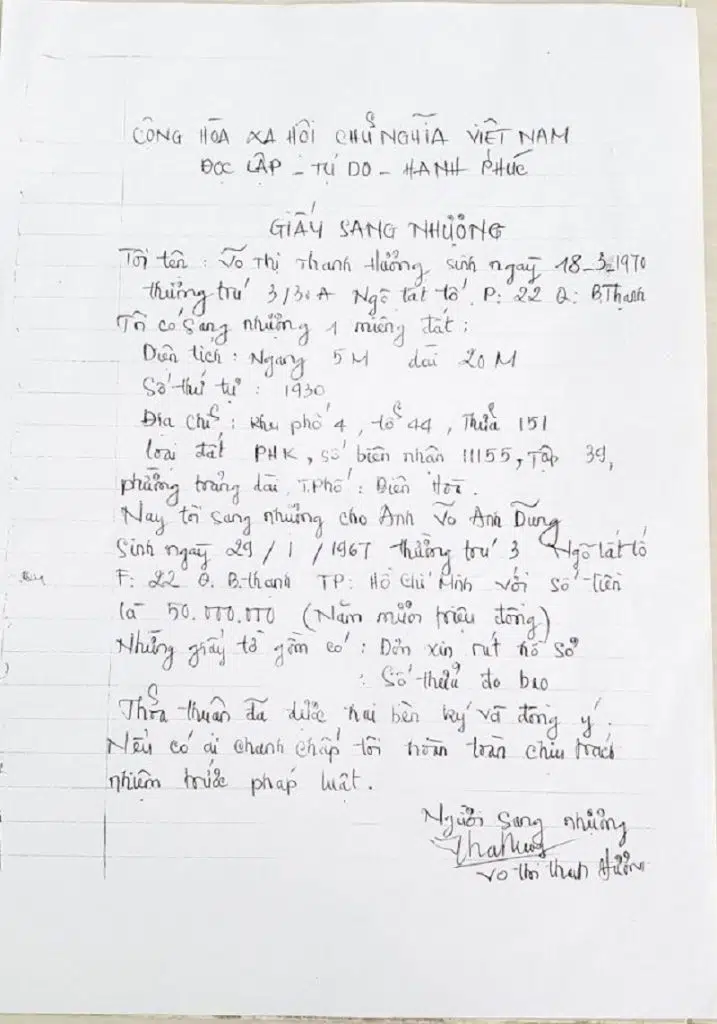 CÔNG HÒA XA HÔI CHỦ NGHĨA VIỆT NAM
ĐỌC LẬP - TỰ DO - HANH PHÚC
GIẤY SANG NHƯỢNG
Tôi tên : Võ Thị Thanh Hưởng sinh ngaỳ 18-3-1970
thường trú 3/30A Ngô tất tố. P: 22 Q: B.Thạnh
Tôi có sang nhượng 1 miếng đất :
Diên tích : Ngang 5M dài 20M
Số thứ tự : 1930
Địa chỉ : khu phố 4, tổ 44, Thửa 151
loại đất PHK, số biên nhân 11155, Tập 39,
phường trảng dài, T.Phố : Biên Hoà.
Nay tôi sang nhượng cho Anh Võ Anh Dũng
Sinh ngaỳ 29/1/1967 thường trú 3 Ngô tất tố
F: 22 Q. B.thạnh TP: Hồ Chí Minh với số tiền
là 50.000.000 (Năm mươi triệu đồng)
Những giấy tờ gồm có : Đơn xin rút hồ sơ
: Số thửa đo bao
Thỏa thuân đã được hai bên ký và đồng ý.
Nếu có ai chanh chấp tôi hoàn toàn chiu trách
nhiệm trước pháp luât.
Người sang nhượng
Võ thi thanh Hưởng